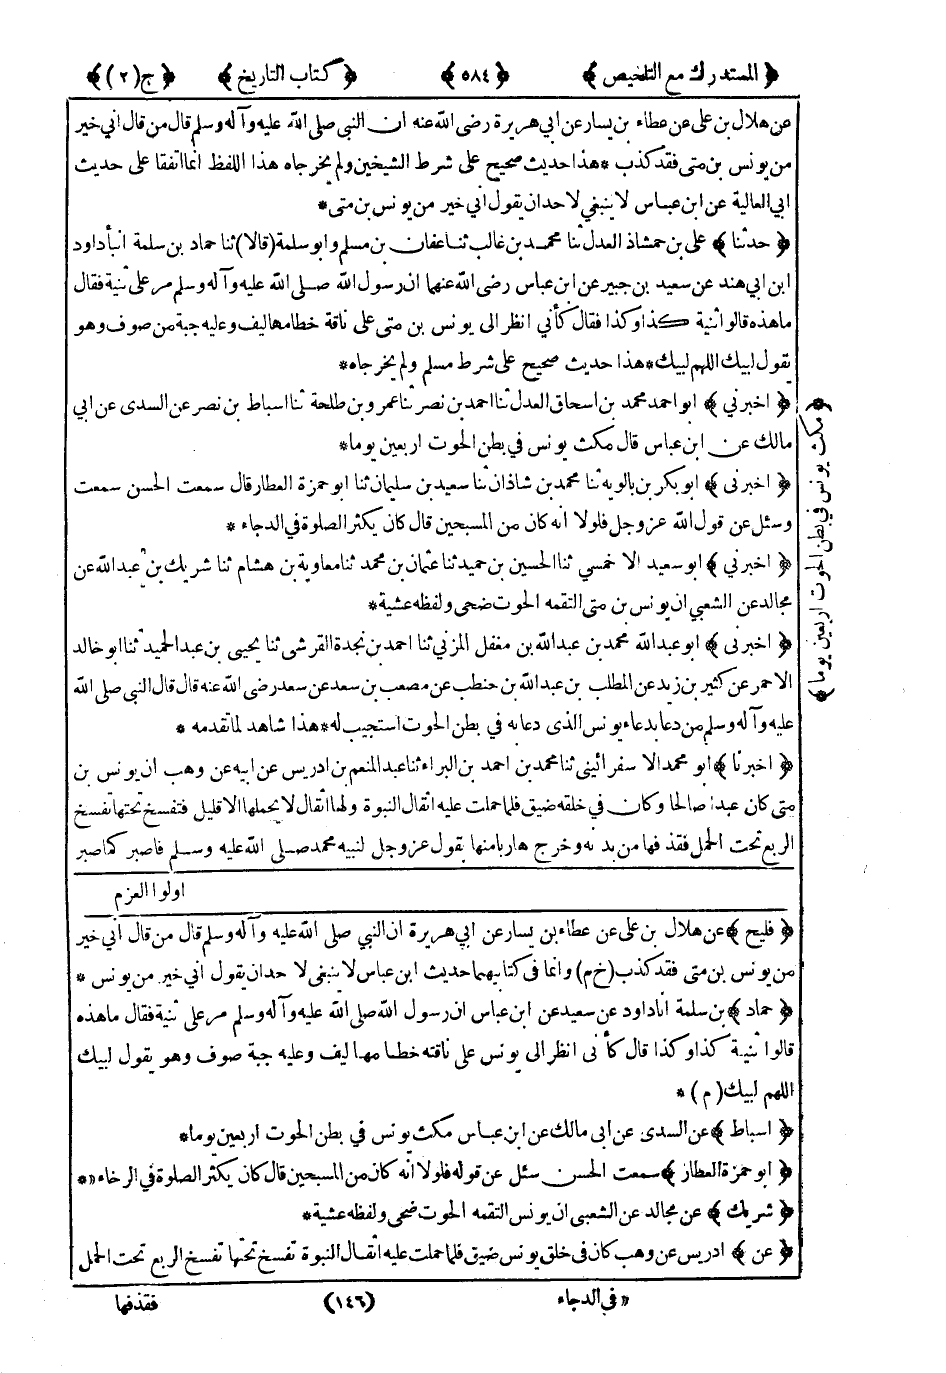 ﴿ المستدرك مع التلخيص ﴾ ﴿ ٥٨٤ ﴾ ﴿ كتاب التاريخ ﴾ ﴿ ج (٢) ﴾
عن هلال بن على عن عطاء بن يسار عن ابي هريرة رضى الله عنه ان النبى صلى الله عليه وآله وسلم قال من قال اني خير
من يونس بن متى فقد كذب * هذا حديث صحيح على شرط الشيخين ولم يخرجاه هذا اللفظ انما اتفقا على حديث
ابي العالية عن ابن عباس لا ينبغي لاحد ان يقول اني خير من يونس بن متى *
﴿ حدثنا ﴾ على بن حمشاذ العدل ثنا محمد بن غالب ثنا عفان بن مسلم وابو سلمة (قالا) ثنا حماد بن سلمة انبأ داود
ابن ابي هند عن سعيد بن جبير عن ابن عباس رضى الله عنهما ان رسول الله صلى الله عليه وآله وسلم مر على ثنية فقال
ما هذه قالوا ثنية كذا وكذا فقال كأني انظر الى يونس بن متى على ناقة خطامها ليف وعليه جبة من صوف وهو
يقول لبيك اللهم لبيك * هذا حديث صحيح على شرط مسلم ولم يخرجاه *
﴿ اخبرني ﴾ ابو احمد محمد بن اسحاق العدل ثنا احمد بن نصر ثنا عمرو بن طلحة ثنا اسباط بن نصر عن السدى عن ابي
مالك عن ابن عباس قال مكث يونس في بطن الحوت اربعين يوما *
﴿ اخبرنى ﴾ ابو بكر بن بالويه ثنا محمد بن شاذان ثنا سعيد بن سليمان ثنا ابو حمزة العطار قال سمعت الحسن سمعت
وسئل عن قول الله عز وجل فلولا انه كان من المسبحين قال كان يكثر الصلوة في الدجاء *
﴿ اخبرني ﴾ ابو سعيد الاخمسي ثنا الحسين بن حميد ثنا عثمان بن محمد ثنا معاوية بن هشام ثنا شريك بن عبد الله عن
مجالد عن الشعبي ان يونس بن متى التقمه الحوت ضحى ولفظه عشية *
﴿ اخبرنى ﴾ ابو عبد الله محمد بن عبد الله بن مغفل المزني ثنا احمد بن نجدة القرشى ثنا يحيى بن عبد الحميد ثنا ابو خالد
الاحمر عن كثير بن زيد عن المطلب بن عبد الله بن حنطب عن مصعب بن سعد عن سعد رضى الله عنه قال قال النبى صلى الله
عليه وآله وسلم من دعا بدعاء يونس الذى دعا به في بطن الحوت استجيب له * هذا شاهد لما تقدمه *
﴿ اخبرنا ﴾ ابو محمد الاسفرائينى ثنا محمد بن احمد بن البراء ثنا عبد المنعم بن ادريس عن ابيه عن وهب ان يونس بن
متى كان عبدا صالحا وكان في خلقه ضيق فلما حملت عليه اثقال النبوة ولها اثقال لا يحملها الا قليل فتفسخ تحتها تفسخ
الربع تحت الحمل فقذفها من يديه وخرج هاربا منها يقول عز وجل لنبيه محمد صلى الله عليه وسلم فاصبر كما صبر
اولوا العزم
﴿ مكث يونس في بطن الحوت اربعين يوما ﴾
﴿ فليح ﴾ عن هلال بن على عن عطاء بن يسار عن ابي هريرة ان النبي صلى الله عليه وآله وسلم قال من قال اني خير
من يونس بن متى فقد كذب (خ م) وانما فى كتابيهما حديث ابن عباس لا ينبغى لاحد ان يقول اني خير من يونس *
﴿ حماد ﴾ بن سلمة انا داود عن سعيد عن ابن عباس ان رسول الله صلى الله عليه وآله وسلم مر على ثنية فقال ما هذه
قالوا ثنية كذا وكذا قال كأنى انظر الى يونس على ناقته خطامها ليف وعليه جبة صوف وهو يقول لبيك
اللهم لبيك (م) *
﴿ اسباط ﴾ عن السدى عن ابى مالك عن ابن عباس مكث يونس في بطن الحوت اربعين يوما *
﴿ ابو حمزة العطار ﴾ سمعت الحسن سئل عن قوله فلولا انه كان من المسبحين قال كان يكثر الصلوة في الرخاء «*
﴿ شريك ﴾ عن مجالد عن الشعبى ان يونس التقمه الحوت ضحى ولفظه عشية *
﴿ عن ﴾ ادريس عن وهب كان فى خلق يونس ضيق فلما حملت عليه اثقال النبوة تفسخ تحتها تفسخ الربع تحت الحمل
« فى الدجاء (١٤٦) فقذفها